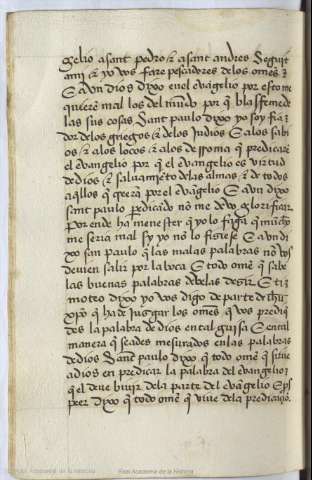 gelio a sant pedro & a sant andres Seguit
ami & yo vos fare pescadores de los omẽs &
E avn dios dixo en el evãgelio por esto me
quierẽ mal los del mũdo por q̃ blasfeme de
las sus cosas Sant paulo dixo yo soy fia
dor de los griegos & de los judios E a los sabi
os / & a los locos & a los de rroma q̃ predicare
el evangelio por q̃ el evangelio es virtud
de dios & salvamiẽto de las almas / & de todos
aq̃llos q̃ creerã por el evãgelio E avn dixo
sant paulo predicãdo no me devo glorificar
Por ende ha menester q̃ yo lo faga q̃ mucho
me seria mal sy yo nõ lo fisiese E avn di
xo san paulo q̃ las malas palabras nõ vos
devien salir por la boca E todo omẽ q̃ sabe
las buenas palabras develas desir E ti
moteo dixo yo vos digo de parte de ihũ
xp̃o q̃ ha de judgar los omẽs q̃ vos predi
des la palabra de dios en tal guisa E en tal
manera q̃ seades mesurados en las palabras
de dios Sant paulo dixo q̃ todo omẽ q̃ sirve
a dios en predicar la palabra del evangelio
q̃ el deve bivir de la parte del evãgelio E
dixo q̃ todo omẽ q̃ vive de la predicaçiõ
Real Academia de la Historia